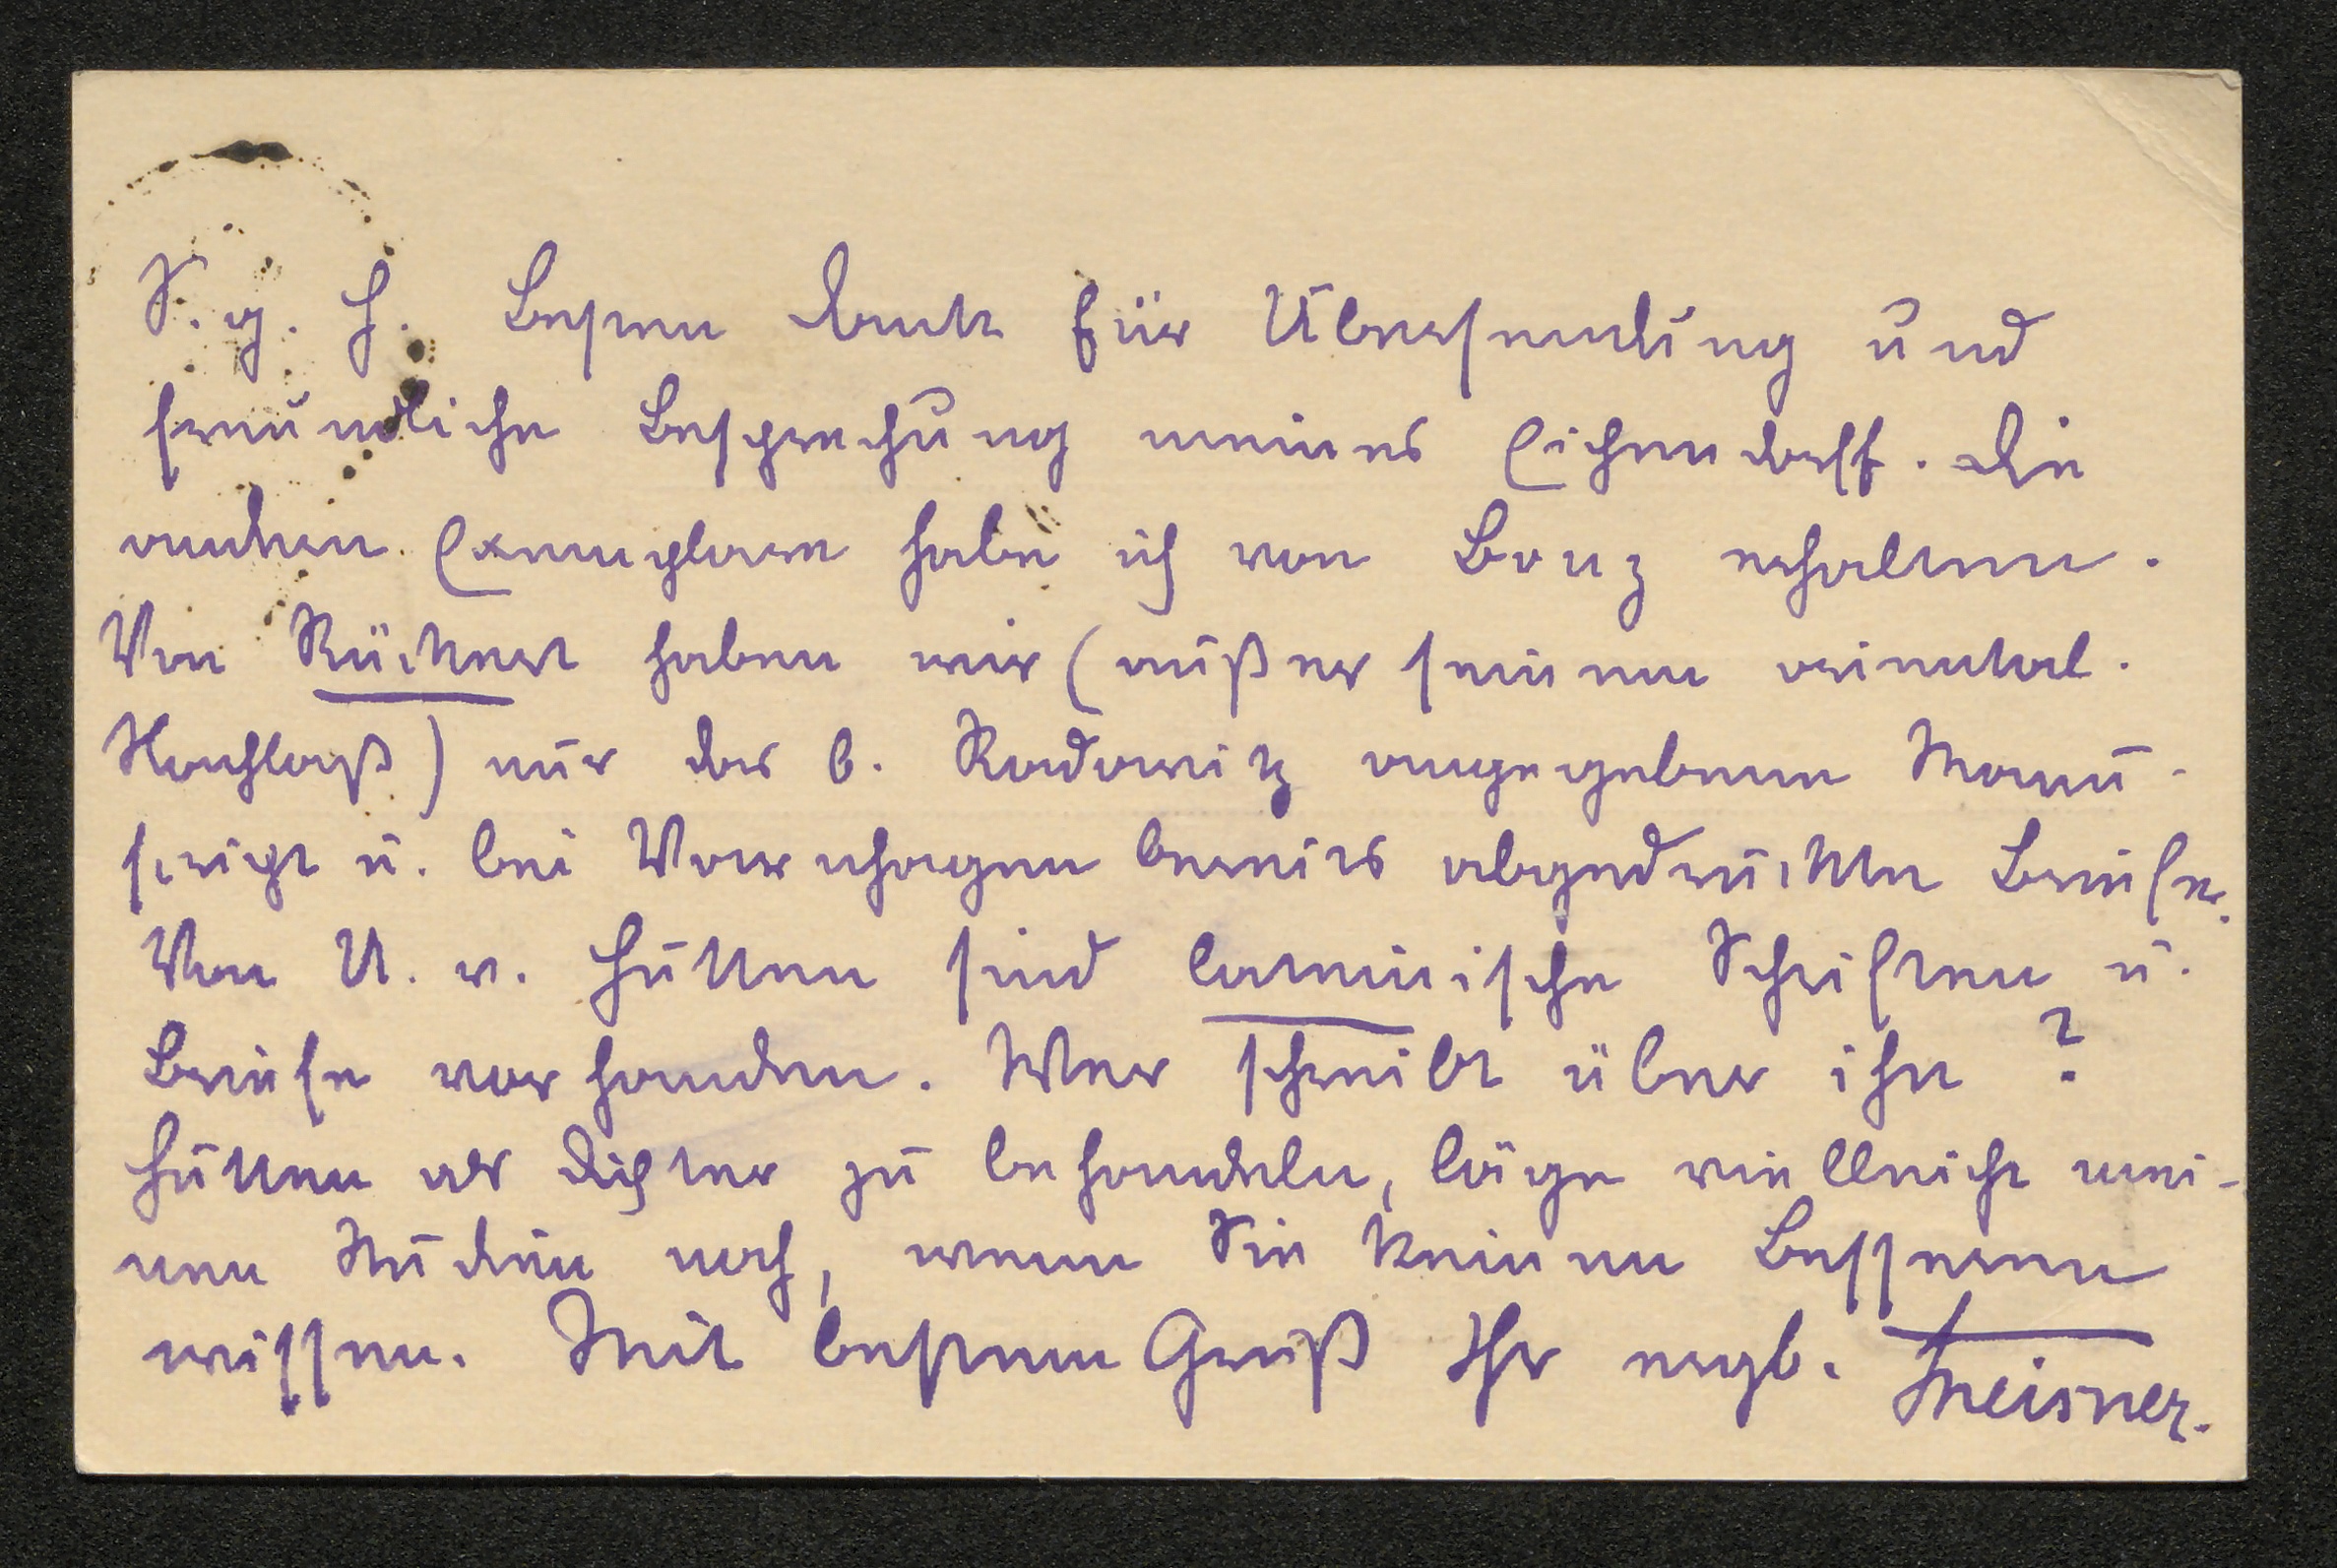 S. g. H. Besten Dank für Übersendung und
freundliche Besprechung meines Eichendorff. Die
andern Exemplare habe ich von Bonz erhalten.
Von Rückert haben wir (außer seinem oriental.
Nachlaß) nur das b. Radowitz angegebene Manu-
script u. bei Varnhagen bereits abgedruckte Briefe.
Von U. v. Hutten sind lateinische Schriften u.
Briefe vorhanden. Wer schreibt über ihn?
Hutten als Dichter zu behandeln, läge vielleicht mei-
nen Studien nah, wenn Sie keinen Besseren
wissen. Mit bestem Gruß Ihr ergb. Meisner.